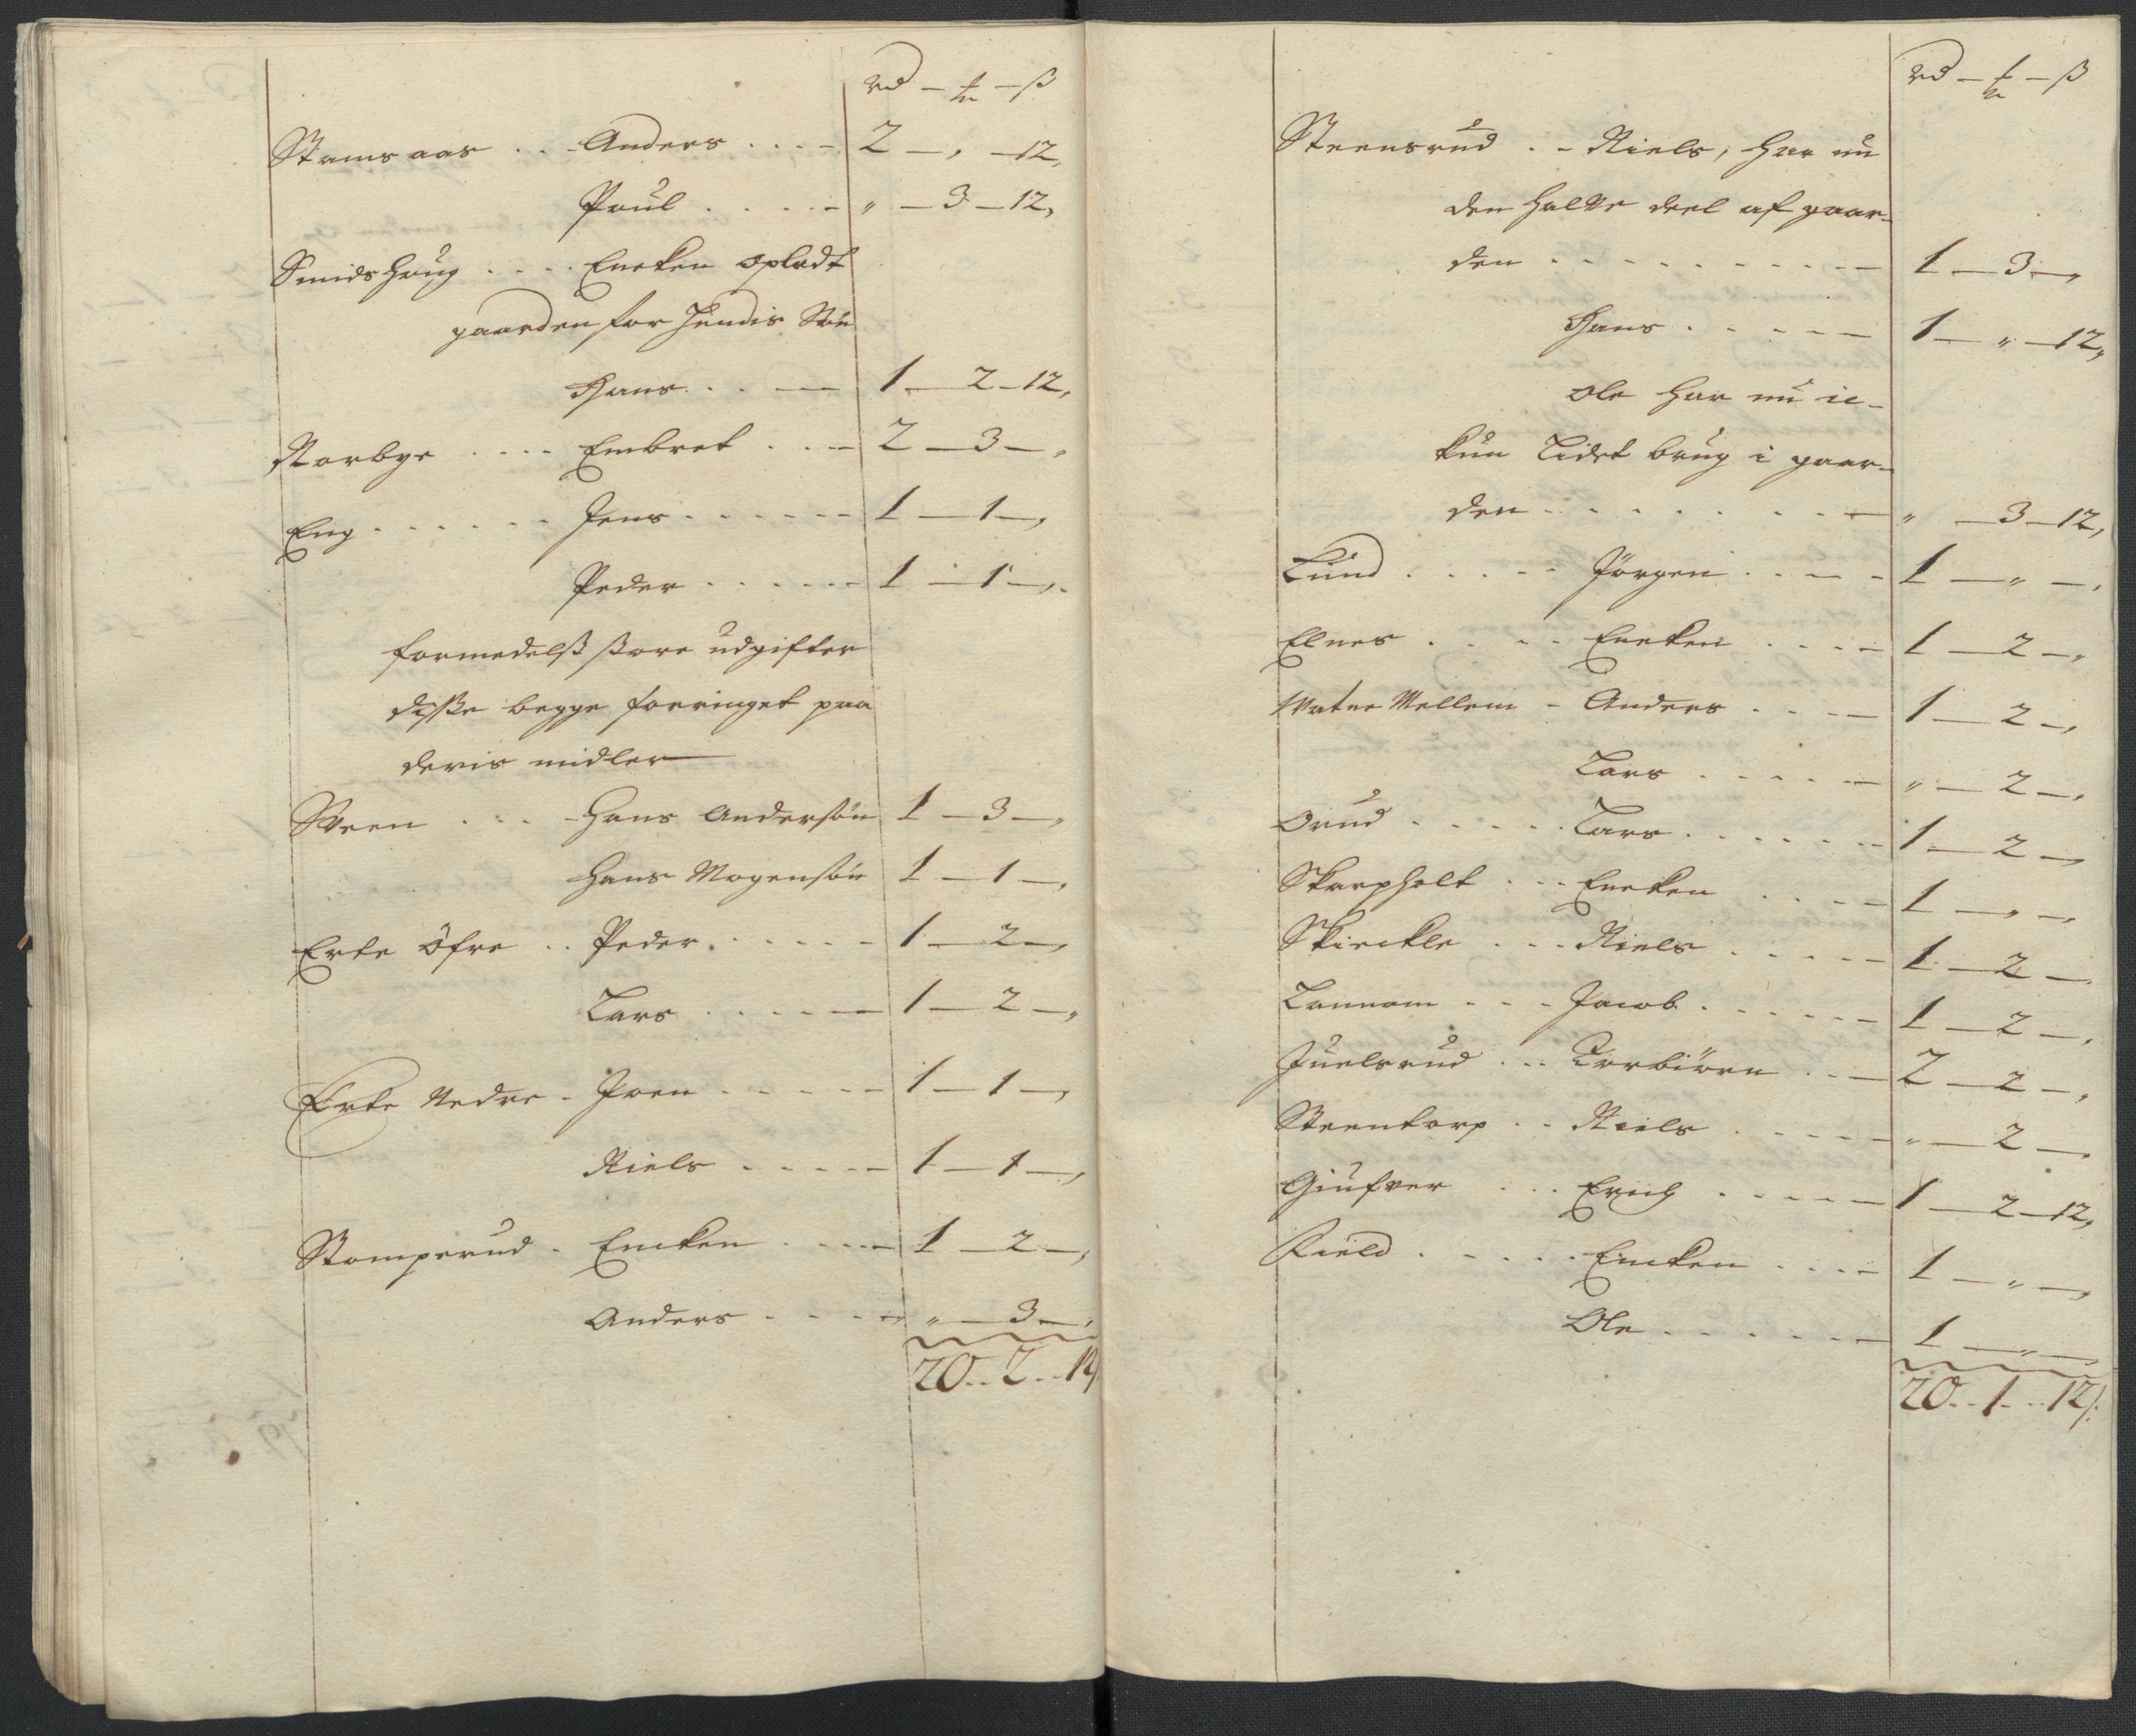 rd — ℔ — ß
Stamsaas . . . Anders . . . . 2 — „ — 12„
Poul . . . . . „ — 3 — 12„
Smidshoug . . . . Encken opladt
gaarden for hendis Søn
Hans . . . 1 — 2 — 12„
Norbye . . . . Embret . . . 2 — 3 — „
Eng . . . . . . Jens . . . . . . 1 — 1 — „
Peder . . . . . . 1 — 1 — „
formedelst store udgifter
disse begge forringet paa
deris midler
Steen . . . Hans Andersøn 1 — 3 — „
Hans Mogensøn 1 — 1 — „
Erte Öfre . . Peder . . . . . 1 — 2 — „
Lars . . . . . 1 — 2 — „
Erte Nedre . Joen . . . . . 1 — 1 — „
Niels . . . . . 1 — 1 — „
Stomperud . Encken . . . . 1 — 2 — „
Anders . . . . „ — 3 — „
20 . . 2 . . 12
rd — ℔ — ß
Steensrud . . Niels, har nu
den halve deel af gaar-
den . . . . . . . . . . 1 — 3 — „
Hans . . . . . 1 — „ — 12„
Ole har nu ic-
kun Lidet brug i gaar-
den . . . . . . . . „ — 3 — 12„
Lund . . . . . Jörgen . . . . . 1 — „ — „
Elnes . . . . Encken . . . . 1 — 2 — „
Anders . . . . 1 — 2 — „
Lars . . . . . „ — 2 — „
Orud . . . . . Lars . . . . . . 1 — 2 — „
Skarpholt . . . Encken . . . . 1 — „ — „
Skieckle . . . Niels . . . . . 1 — 2 — „
Lannom . . . . Jacob . . . . . . 1 — 2 — „
Juelsrud . . . Torbiörn . . . 2 — 2 — „
Steentorp . . Niels . . . . . „ — 2 — „
Giufver . . . Erich . . . . . 1 — 2 — 12„
Field . . . . . Encken . . . . 1 — „ — „
Ole . . . . . . 1 — „ — „
20 . . 1 . . . 12